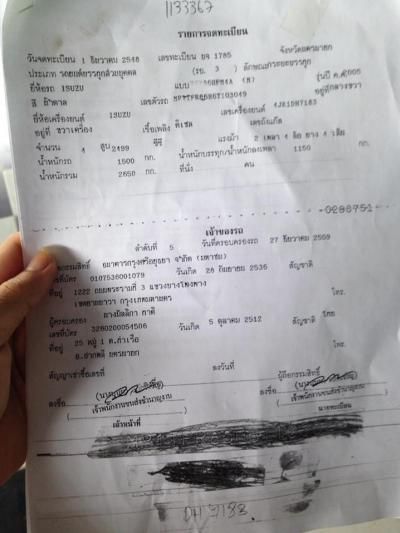 1133367
รายการจดทะเบียน
วันจดทะเบียน 1 ธันวาคม 2548 เลขทะเบียน ยจ 1785 จังหวัดนครนายก
ประเภท รถยนต์บรรทุกส่วนบุคคล (รย. 3 ) ลักษณะ
ยี่ห้อรถ ISUZU แบบ (M) รุ่นปี ค.ศ.
สี เลขตัวรถ อยู่ที่
ยี่ห้อเครื่องยนต์ ISUZU เลขเครื่องยนต์
อยู่ที่ ขวาเครื่อง เชื้อเพลิง ดีเซล เลขถังแก๊ส
จำนวน 4 สูบ 2499 ซีซี แรงม้า 2 เพลา 4 ล้อ ยาง 4 เส้น
น้ำหนักรถ 1500 กก. น้ำหนักบรรทุก/น้ำหนักลงเพลา 1150 กก.
น้ำหนักรวม 2650 กก. ที่นั่ง คน
0286751
เจ้าของรถ
ลำดับที่ 5 วันที่ครอบครองรถ 27 ธันวาคม 2559
ผู้ถือกรรมสิทธิ์ ธนาคารกรุงศรีอยุธยา จำกัด (มหาชน)
เลขที่บัตร 0107536001079 วันเกิด 28 กันยายน 2536 สัญชาติ
ที่อยู่ 1222 ถนนพระรามที่ 3 แขวงบางโพงพาง
เขตยานนาวา กรุงเทพมหานคร โทร.
ผู้ครอบครอง
เลขที่บัตร 3260200054506 วันเกิด 5 ตุลาคม 2512 สัญชาติ ไทย
ที่อยู่ 25 หมู่ 1 ต.ท่าเรือ
อ.ปากพลี นครนายก โทร.
สัญญาเช่าซื้อเลขที่ ลงวันที่ ผู้ถือกรรมสิทธิ์
ลงชื่อ ลงชื่อ
เจ้าพนักงานขนส่งชำนาญงาน เจ้าพนักงานขนส่งชำนาญงาน
เจ้าหน้าที่ นายทะเบียน